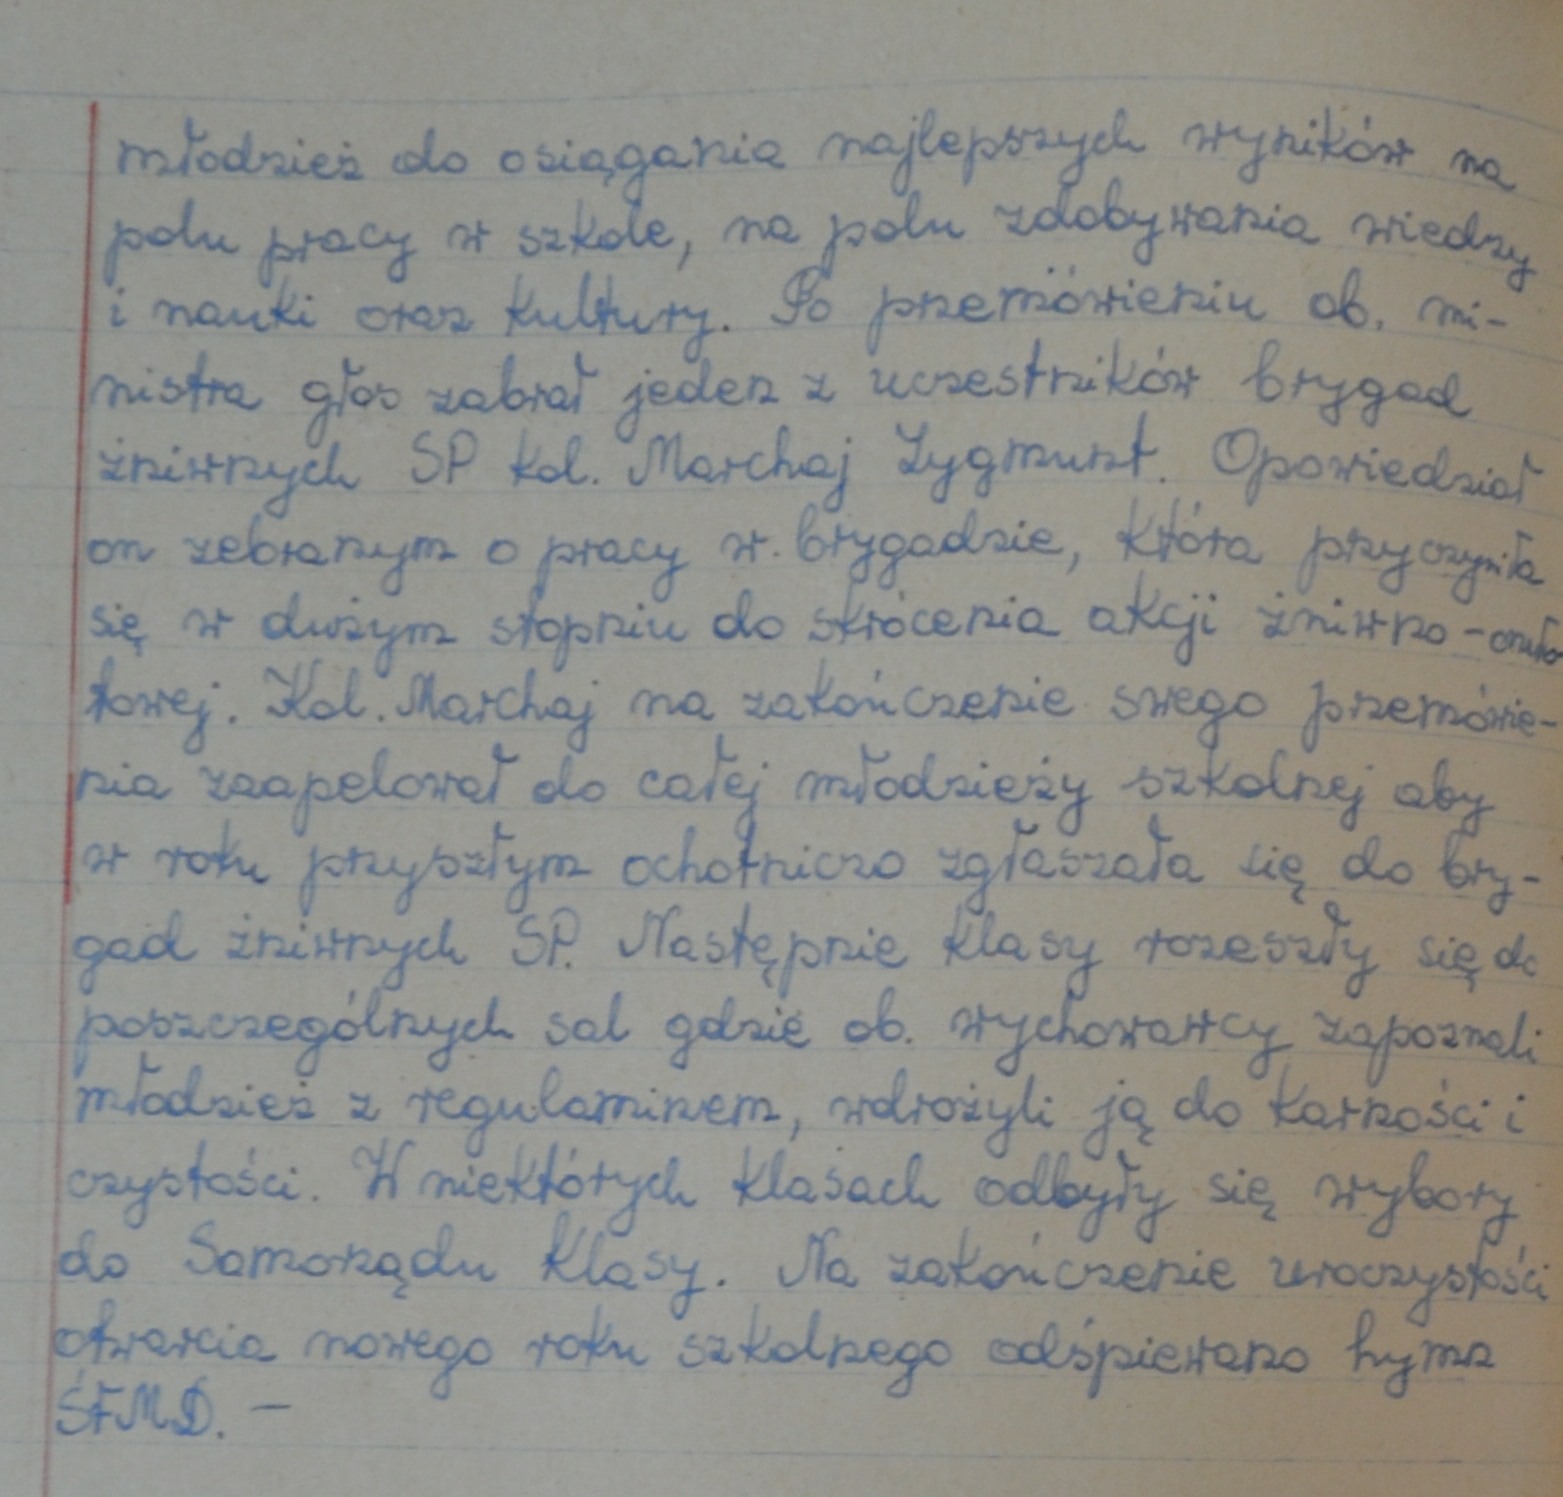 młodzież do osiągania najlepszych wyników na
polu pracy w szkole, na polu zdobywania wiedzy
i nauki oraz kultury. Po przemówieniu ob. mi-
nistra głos zabrał jeden z uczestników brygad
żniwnych SP kol. Marchaj Zygmunt. Opowiedział
on zebranym o pracy w brygadzie, która przyczyniła
się w dużym stopniu do skrócenia akcji żniwno-omło
towej. Kol. Marchaj na zakończenie swego przemówie-
nia zaapelował do całej młodzieży szkolnej aby
w roku przyszłym ochotniczo zgłaszała się do bry-
gad żniwnych SP. Następnie klasy rozeszły się do
poszczególnych sal gdzie ob. wychowawcy zapoznali
młodzież z regulaminem, wdrożyli ją do karności i
czystości. W niektórych klasach odbyły się wybory
do Samorządu Klasy. Na zakończenie uroczystości
otwarcia nowego roku szkolnego odśpiewano hymn
ŚFMD. —